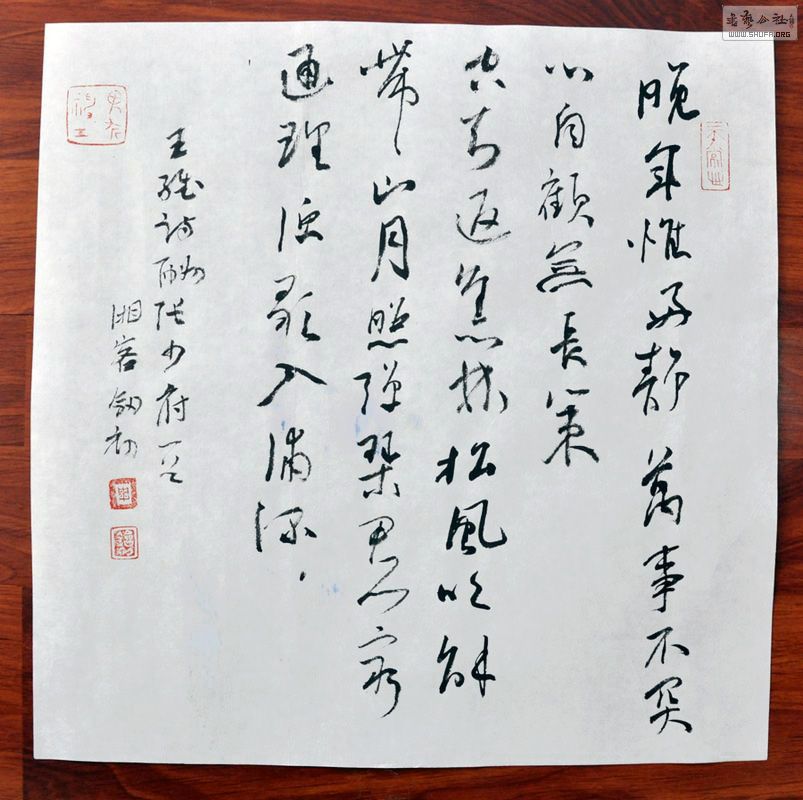 晚年惟好靜萬事不関
心自顧無長策
空知返舊林松風吹解
帶山月照彈琴君問窮
通理漁歌入浦深
王維詩酬張少府一首
湘客劍初
書藝公社
WWW.SHUFA.ORG